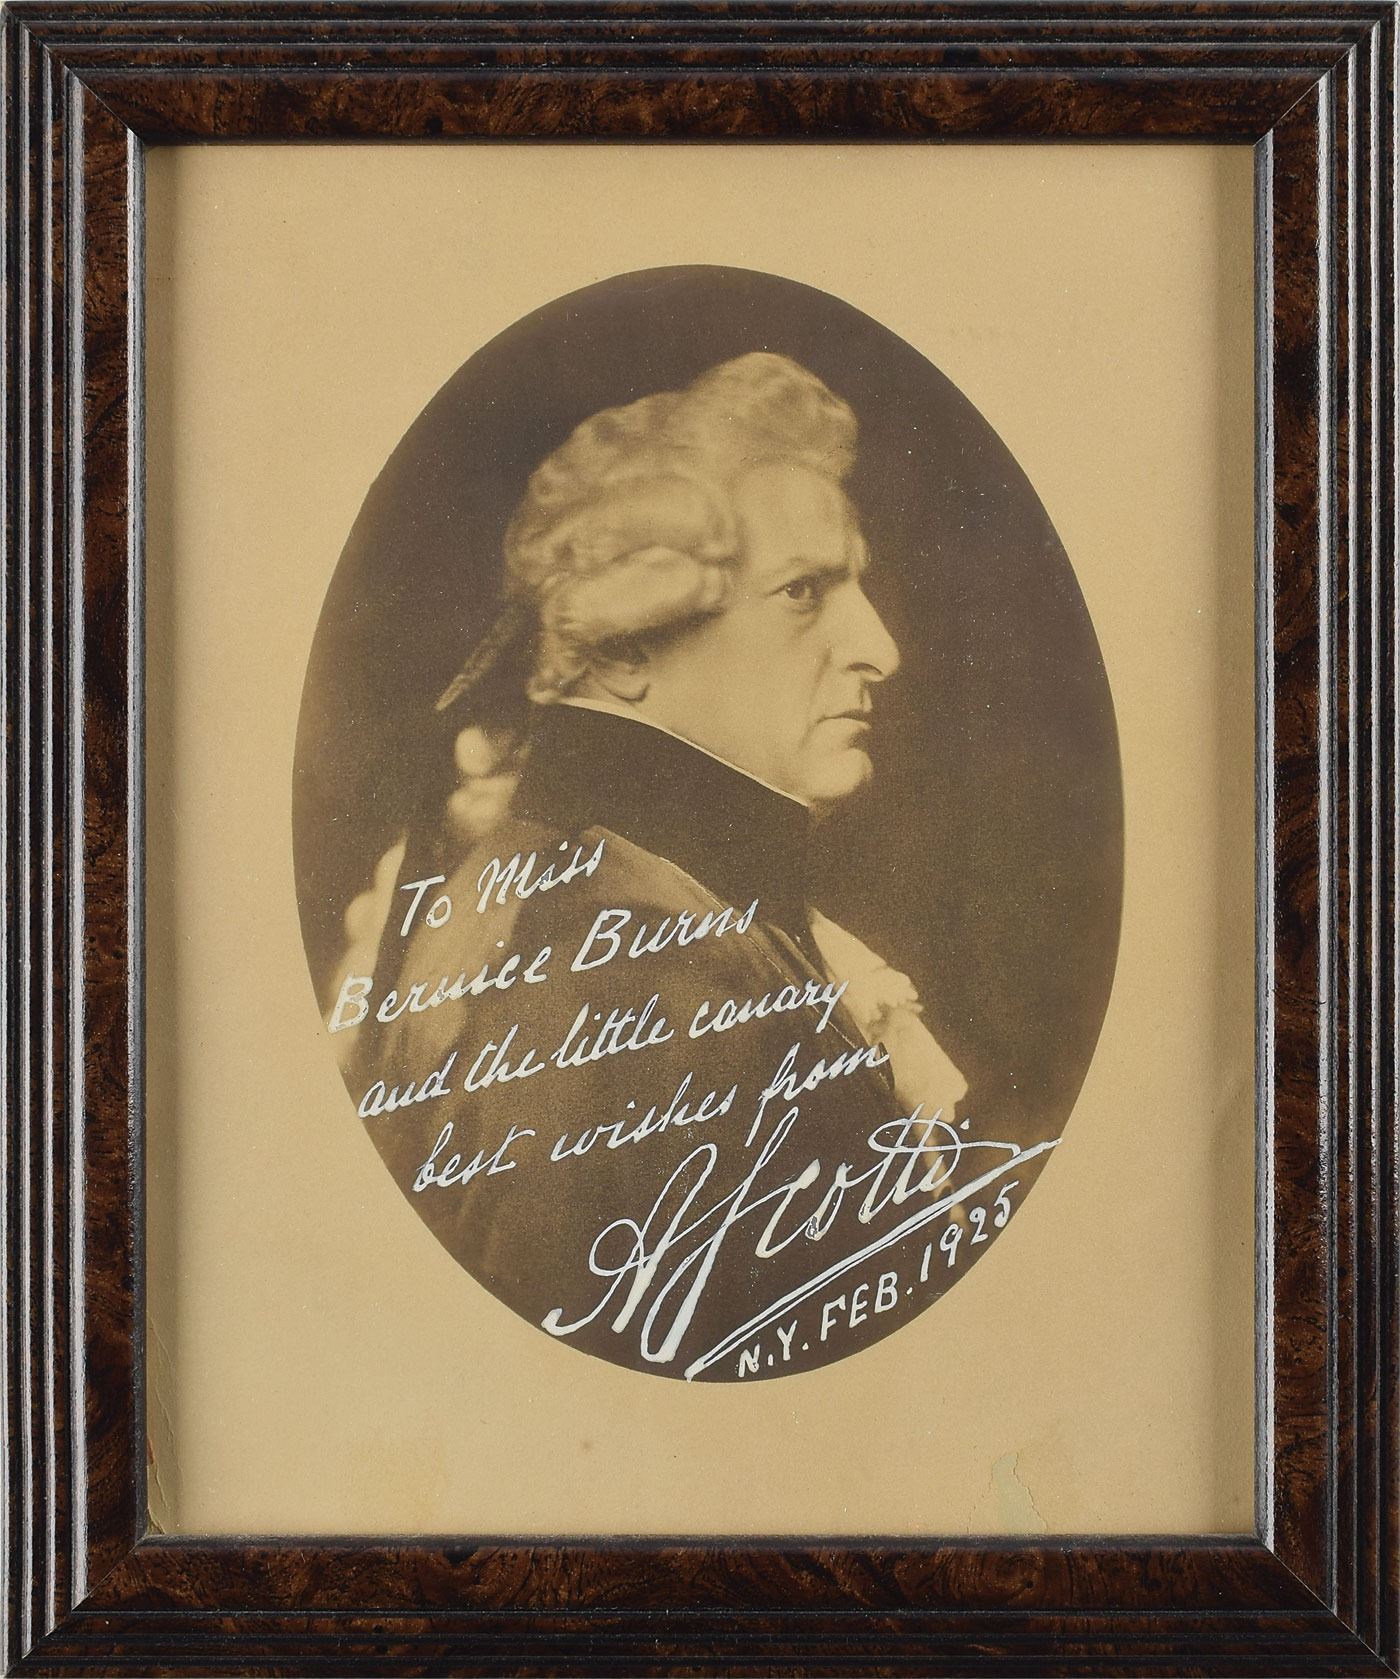 To Miss
Bernice Burns
and the little canary
best wishes from
AScotti
N.Y. FEB. 1925